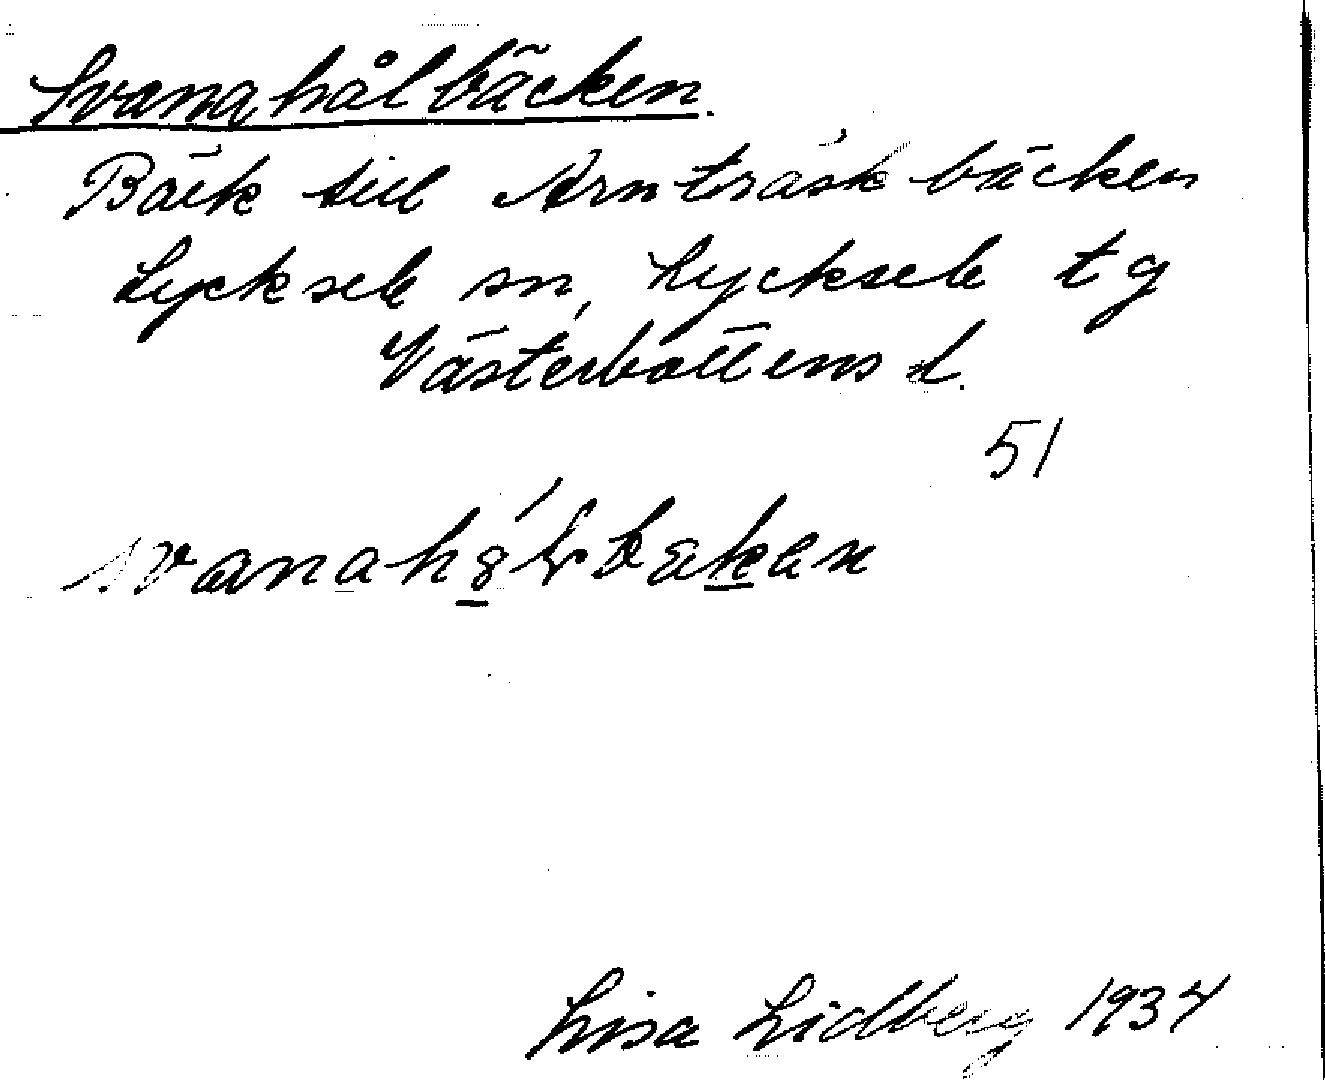 Svanahålbäcken.
Bäck till Arnträskbäcken
Lycksele sn, Lycksele tg
Västerbottens l.
51
Lisa Lidberg 1934